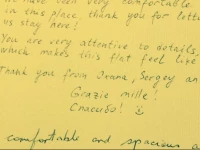 have been very comfortable
in this place, thank you for letting
us stay here!
You are very attentive to details,
which makes this flat feel like
Thank you from Oxana, Sergey an
Grazie mille!
Спасибо!
comfortable and spacious a